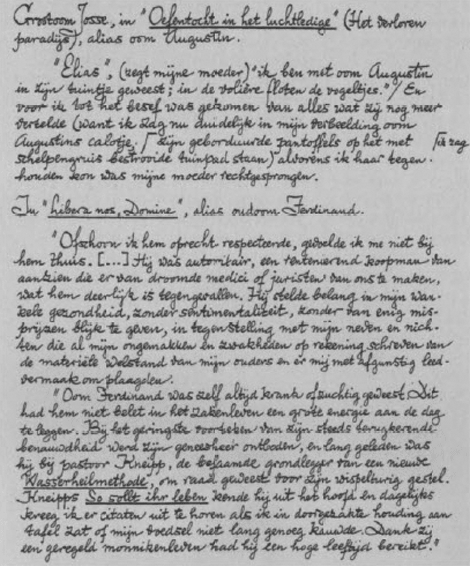 Grootoom Josse, in "Oefentocht in het luchtledige" (Het verloren
paradijs), alias oom Augustin.
"Elias", (zegt mijne moeder) "ik ben met oom Augustin
in zijn tuintje geweest; in de volière floten de vogeltjes."/ En
voor ik tot het besef was gekomen van alles wat zij nog meer
vertelde (want ik zag nu duidelijk in mijn verbeelding oom
Augustins calotje. / zijn geborduurde pantoffels op het met /ik zag
schelpengruis bestrooide tuinpad staan) alvorens ik haar tegen-
houden kon was mijne moeder rechtgesprongen.
In "Libera nos, Domine", alias oudoom Ferdinand.
"Ofschoon ik hem oprecht respecteerde, gevoelde ik me niet bij
hem thuis. [....] Hij was autoritair, een rentenierend koopman van
aanzien die er van droomde medici of juristen van ons te maken,
wat hem deerlijk is tegengevallen. Hij stelde belang in mijn wan-
kele gezondheid, zonder sentimentaliteit, zonder van enig mis-
prijzen blijk te geven, in tegenstelling met mijn neven en nich-
ten die al mijn ongemakken en zwakheden op rekening schreven van
de materiële welstand van mijn ouders en er mij met afgunstig leed-
vermaak om plaagden.
"Oom Ferdinand was zelf altijd krank of zuchtig geweest. Dit
had hem niet belet in het zakenleven een grote energie aan de dag
te leggen. Bij het geringste voorteken van zijn steeds terugkerende
benauwdheid werd zijn geneesheer ontboden, en lang geleden was
hij bij pastoor Kneipp, de befaamde grondlegger van een nieuwe
Wasserheilmethode, om raad geweest voor zijn wispelturig gestel.
Kneipps So sollt ihr leben kende hij uit het hoofd en dagelijks
kreeg ik er citaten uit te horen als ik in doorgezakte houding aan
tafel zat of mijn voedsel niet lang genoeg kauwde. Dank zij
een geregeld monnikenleven had hij een hoge leeftijd bereikt."